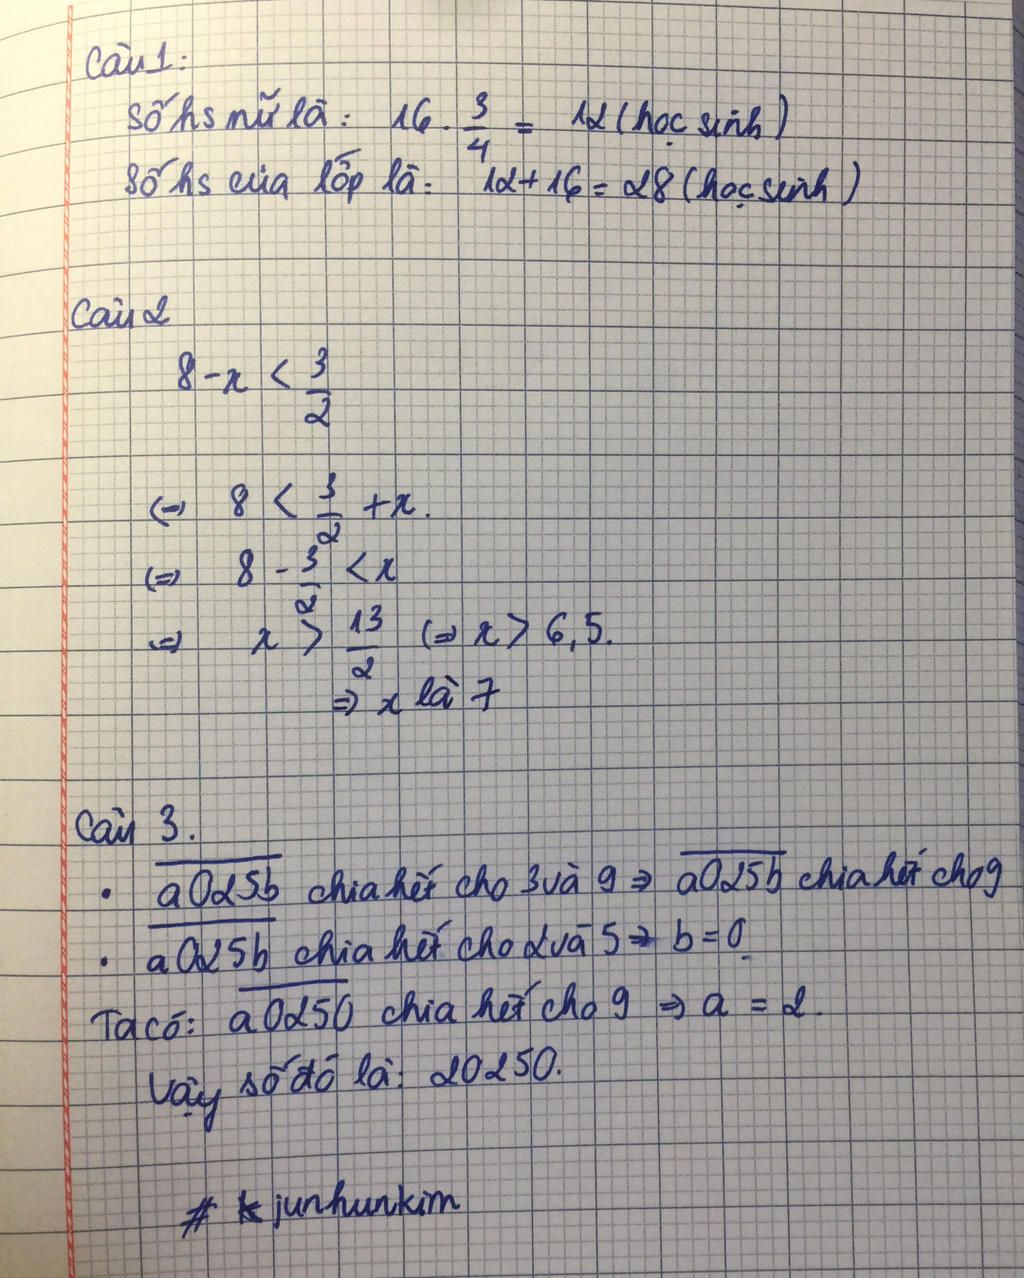 Câu 1:
Số hs nữ là: 16 . 3/4 = 12 (học sinh)
Số hs của lớp là: 12 + 16 = 28 (học sinh)
Câu 2
8 - x < 3/2
(=) 8 < 3/2 + x.
(=) 8 - 3/2 < x
=) x > 13/2 (=) x > 6,5.
=) x là 7
Câu 3.
• a025b chia hết cho 3 và 9 => a025b chia hết cho 9
• a025b chia hết cho 2 và 5 => b = 0
Ta có: a0250 chia hết cho 9 => a = 2.
Vậy số đó là: 20250.
# junhunkim